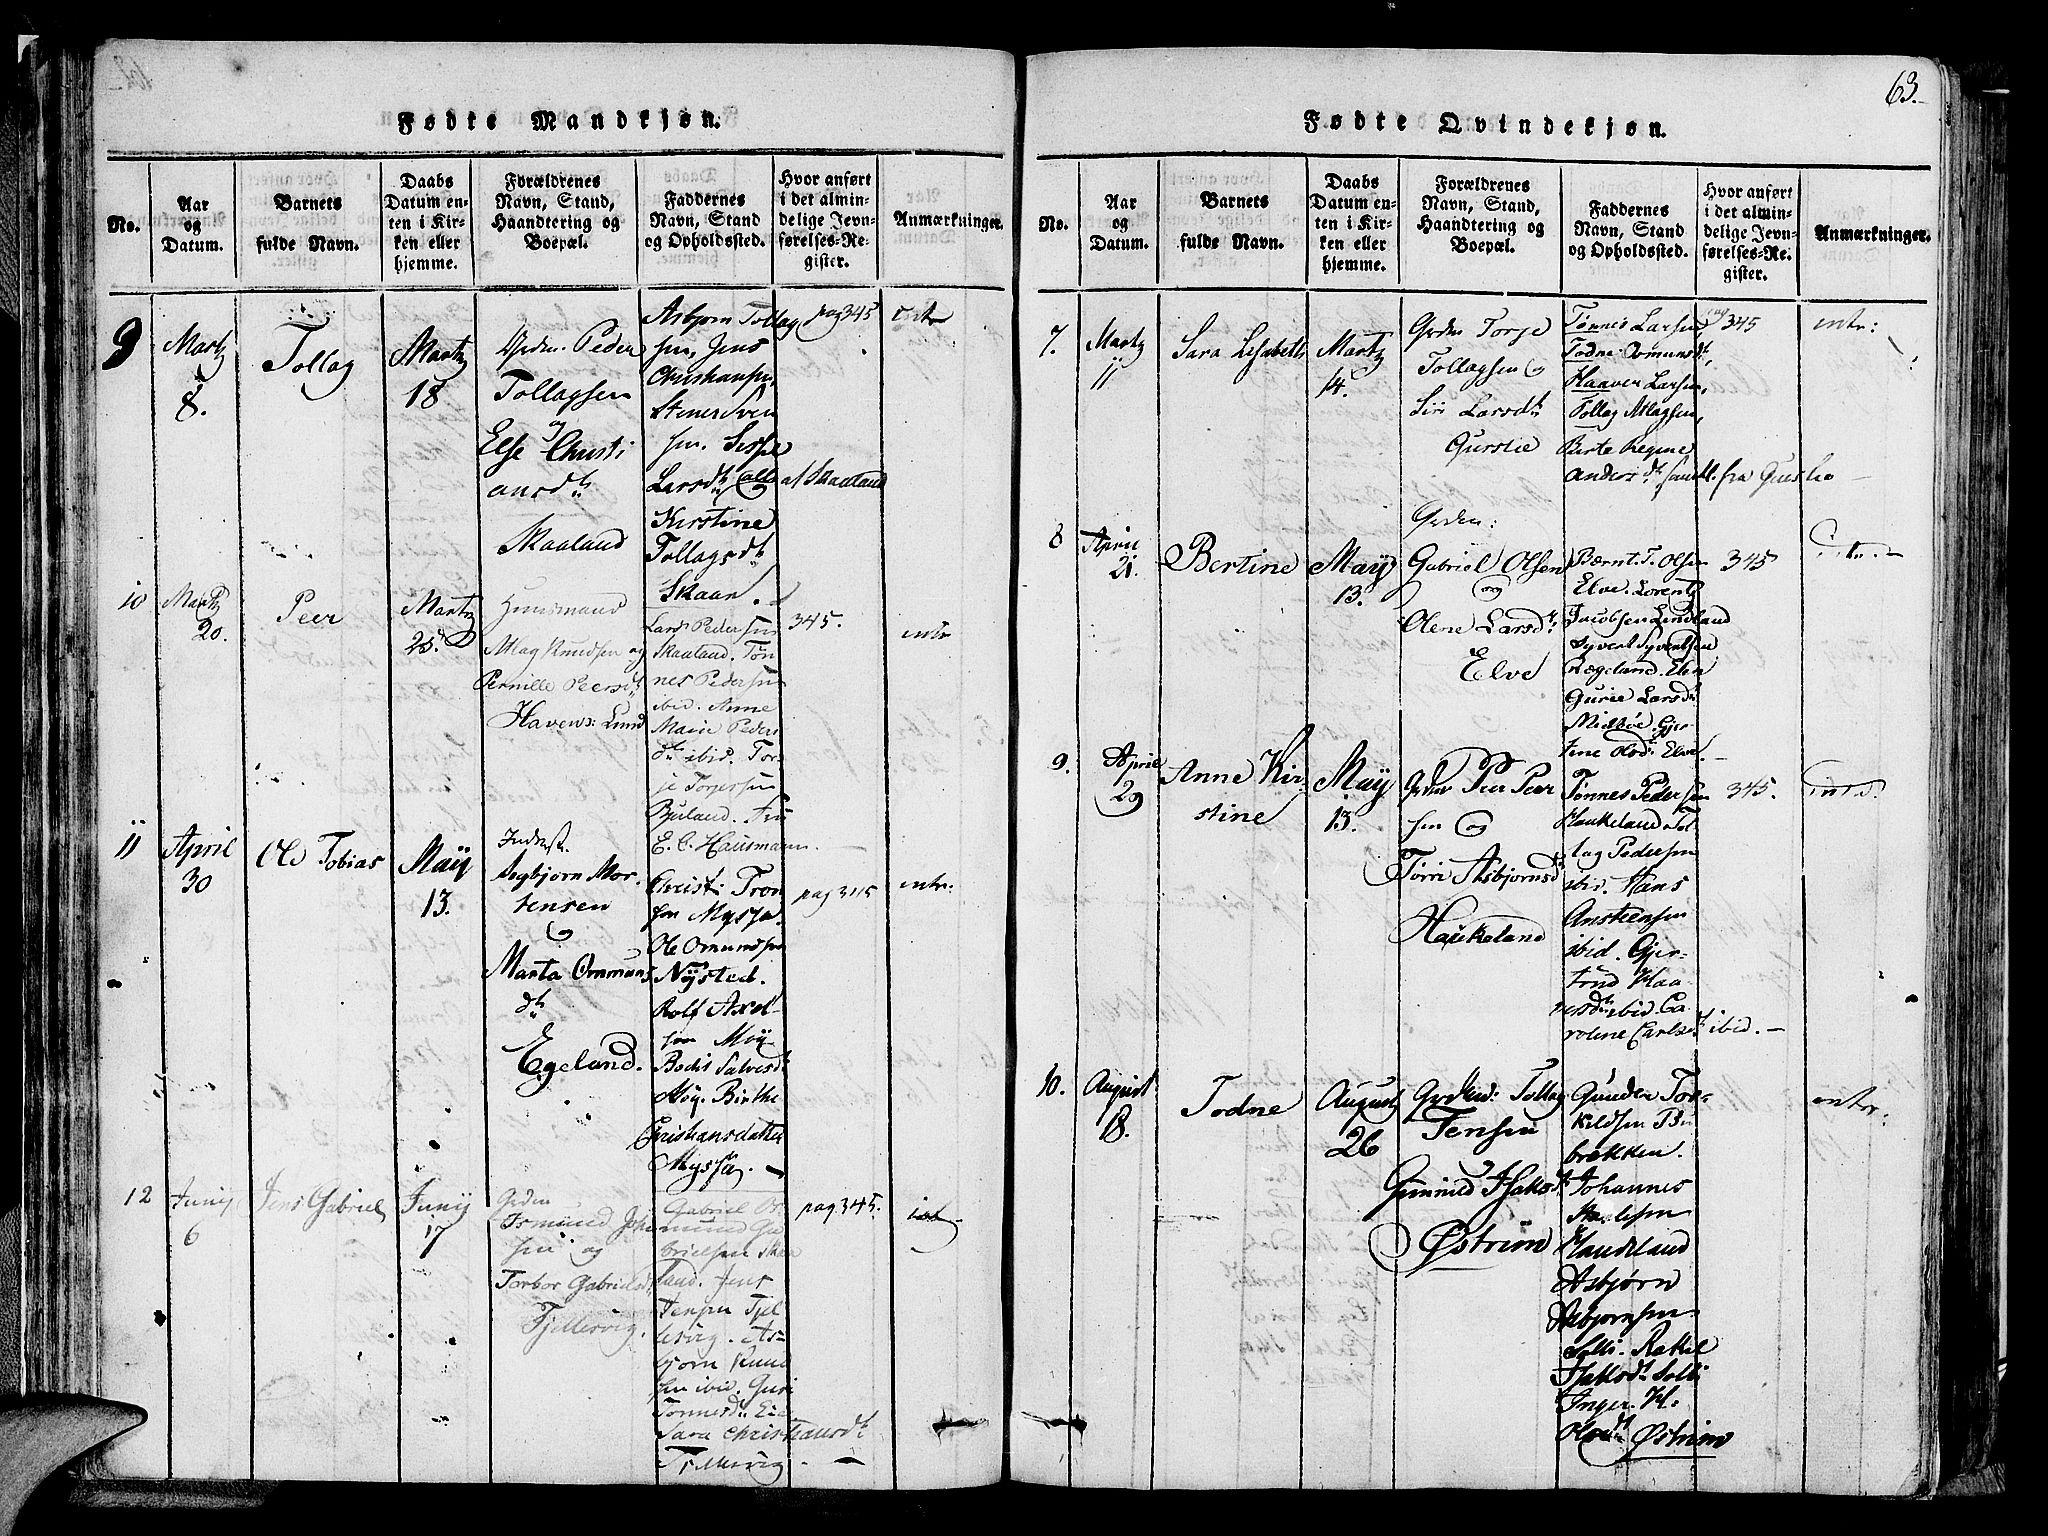 Fødte Mandkjøn.
No.
Aar
og
Datum.
Barnets
fulde Navn.
Daabs
Datum en-
ten i Kir-
ken eller
hjemme.
Forældrenes
Navn, Stand,
Haandtering og
Boepæl.
Faddernes
Navn, Stand
og Opholdssted.
Hvor anført
i det almin-
delige Jevn-
førelses-Re-
gister.
Anmærkninger.
9
Martz
8.
Tollag
Martz
18
Grdm. Peder
Tollagsen
og
Else Christi
ansdtr
Skaaland
Asbjørn Tollag
sen, Jens
Christiansen
Stener Sven
sen. Sissel
Larsdtr alle af Skaaland
Kirstine
Tollagsdtr
Skaar.
pag 345
entr
10
Martz
20.
Peer
Martz
25.
Huusmand
Atlag Knudsen og
Pernille Peersdtr
Havews: Lund
Lars Pedersen
Skaaland. Tøn
nes Pedersen
ibid. Anne
Marie Peders
dtr ibid. Tor-
je Torjersen
Bjuland.
E. C. Hausmann.
345.
entr
11
April
30
Ole Tobias
Maÿ
13.
Inderst.
Asgbjørn Mor-
tensen
og
Marta Ommuns
dtr
Egeland.
Christi Tron
sen Myssa
Ole Omunsen
Nÿsted.
Rolf Axel-
sen Moÿ
Bodil Salvesdtr
Moÿ. Birthe
Christiansdatter
Myssa. -
pag 345
entr.
12
Junij
6
Jens Gabriel
Junij
17
Grdm
Osmund John
sen og
Torbor Gabrielsdtr
Tjellesvig.
Gabriel Os-
mund Ga-
brielsen Skaa
land. Jens
Jensen Tjel
lesvig. As-
bjørn Knud
sen ibid. Guri
Tønnesdtr
Sara Christiansdtr
Tjellesvig. -
pag. 345.
63.
Fødte Qvindekjøn.
No.
Aar
og
Datum.
Barnets
fulde Navn.
Daabs
Datum en-
ten i Kir-
ken eller
hjemme.
Forældrenes
Navn, Stand,
Haandtering og
Boepæl.
Faddernes
Navn, Stand
og Opholdssted.
Hvor anført
i det almin-
delige Jevn-
førelses-Re-
gister.
Anmærkninger.
7.
Martz
11
Sara Lisabeth
Martz
14.
Grdm Torje
Tollagsen og
Siri Larsdtr
GursLie
Tønnes Larsen,
Todne Omunsdtr,
Haaver Larsen,
Tollag Atlagsen,
Birte Regine
Andersdtr samtl. fra Gurslie -
345
entr:
8
April
21.
Bertine
Maÿ
13.
Grdm:
Gabriel Olsen
og
Olene Larsdtr
Elve
Bærnt. T. Olsen
Elve. Lorentz
Jacobsen Lindland
Syvert Syvertsen
Rægeland. Elen
Gurie Larsdtr
Midbøe. Gjer-
tine Olsdtr Elve.
345
9.
April
29
Anne Kir
stine
Maÿ
13.
Grdm Peer Peer
sen og
Tørri Asbjørnsdtr
Haukeland
Tønnes Pedersen
Haukeland. Tol-
lag Pedersen
ibid. Hans
Ansteensen
ibid. Gjer-
trud Haa-
versdtr ibid. Ca-
roline Carlsdtr ibid. -
345.
10.
August
18.
Todne
August
26
Grdm: Tollag
Jensen
Gunnild Isaksdtr
Østrim
Gunder Tor-
kildsen
brekken.
Johannes
Haukland
Asbjørn
Asbjørnsen
Solli. Rakel
Isaksdtr Solli
Inger. K.
Olsdtr Østrim
entr.